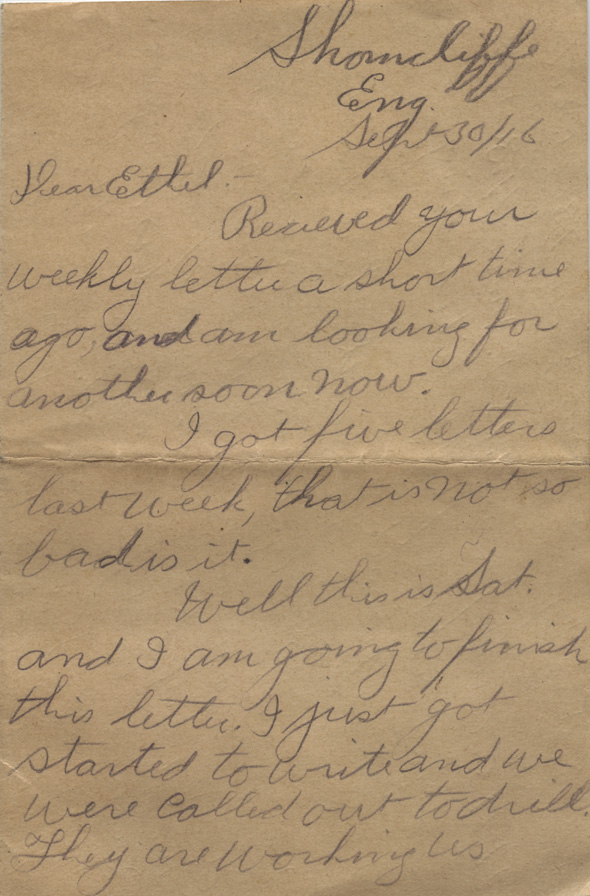 Shorncliffe
Eng.
Sept 30/16
Dear Ethel.-
Recieved your
weekly letter a short time
ago, and am looking for
another soon now.
I got five letters
last week, that is not so
bad is it.
Well this is Sat.
and I am going to finish
this letter. I just got
started to write and we
were called out to drill.
They are working us